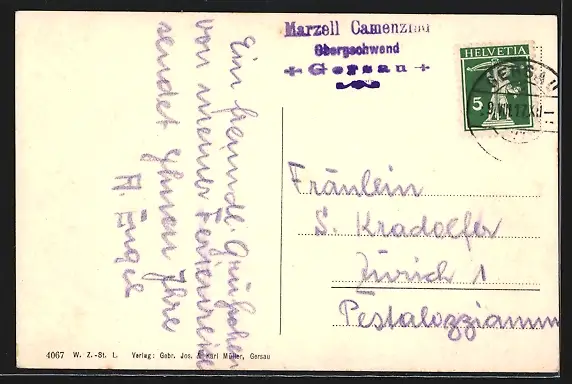 Marzell Camenzind
Obergschwend
+ Gersau +
HELVETIA
5
GERSAU
Fräulein
S. Kradolfer
Zürich 1
Pestalozzianum
Ein freundl. Grüßchen
von meiner Ferienreise
sendet Ihnen Ihre
A. Engel
4067 W. Z.-St. L. Verlag: Gebr. Jos. & Karl Müller, Gersau